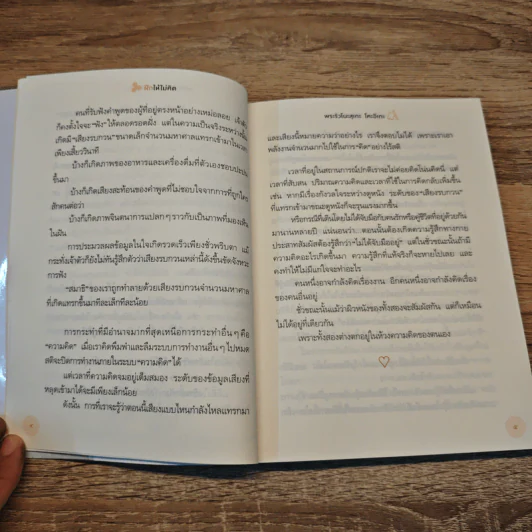 ฝึกให้ไม่คิด
คนที่รับฟังคำพูดของผู้ที่อยู่ตรงหน้าอย่างเหม่อลอย เจ้าตัว
ก็คงตั้งใจจะ “ฟัง” ให้ตลอดรอดฝั่ง แต่ในความเป็นจริงระหว่างนั้น
เกิดมี “เสียงรบกวน” ขนาดเล็กจำนวนมหาศาลแทรกเข้ามาในเวลา
เพียงเสี้ยววินาที
บ้างก็เกิดภาพของอาหารและเครื่องดื่มที่ตัวเองชอบปรากฏ
ขึ้นมา
บ้างก็เกิดเสียงสะท้อนของคำพูดที่ไม่ชอบใจจากการที่ถูกใคร
สักคนต่อว่า
บ้างก็เกิดภาพจินตนาการแปลกๆ ราวกับเป็นภาพที่มองเห็น
ในฝัน
การประมวลผลข้อมูลในใจเกิดรวดเร็วเพียงชั่วพริบตา แม้
กระทั่งเจ้าตัวก็ยังไม่ทันรู้สึกตัวว่าเสียงรบกวนเหล่านี้ดังขึ้นขัดจังหวะ
การฟัง
“สมาธิ” ของเราถูกทำลายด้วยเสียงรบกวนจำนวนมหาศาล
ที่เกิดแทรกขึ้นมาทีละเล็กทีละน้อย
การกระทำที่มีอำนาจมากที่สุดเหนือการกระทำอื่นๆ คือ
“ความคิด” เมื่อเราคิดพึมพำและลืมระบบการทำงานอื่นๆ ไปหมด
สติจะปิดการทำงานภายในระบบ “ความคิด” ได้
แต่เวลาที่ความคิดจมอยู่เต็มสมอง ระดับของข้อมูลเสียงที่
หลุดเข้ามาได้จะมีเพียงเล็กน้อย
ดังนั้น การที่เราจะรู้ว่าตอนนี้เสียงแบบไหนกำลังไหลแทรกมา
พระริวโนะสุเกะ โคะอิเกะ
และเสียงนี้หมายความว่าอย่างไร เราจึงตอบไม่ได้ เพราะเราเอา
พลังงานจำนวนมากไปใช้ในการ “คิด” อย่างไร้สติ
เวลาที่อยู่ในสถานการณ์ปกติเราจะไม่ค่อยคิดโน่นคิดนี่ แต่
เวลาที่สับสน ปริมาณความคิดและเวลาที่ใช้ในการคิดกลับเพิ่มขึ้น
เช่น หากมีเรื่องกังวลใจระหว่างดูหนัง ระดับของ “เสียงรบกวน”
ที่แทรกเข้ามาขณะดูหนังก็จะรุนแรงมากขึ้น
หรือกรณีที่เดินโดยไม่ได้จับมือกับคนรักหรือคู่ชีวิตที่อยู่ด้วยกัน
มานานหลายปี แน่นอนว่าตอนนั้นต้องเกิดความรู้สึกทางกาย
ประสาทสัมผัสต้องรู้สึกว่า “ไม่ได้จับมืออยู่” แต่ในชั่วขณะนั้นถ้ามี
ความคิดอะไรเกิดขึ้นมา ความรู้สึกที่แท้จริงก็จะหายไปเลย และ
คงทำให้ไม่มีแก่ใจจะทำอะไร
คนหนึ่งอาจกำลังคิดเรื่องงาน อีกคนหนึ่งอาจกำลังคิดเรื่อง
ของคนอื่นอยู่
ชั่วขณะนั้นแม้ว่าผิวหนังของทั้งสองจะสัมผัสกัน แต่ก็เหมือน
ไม่ได้อยู่ที่เดียวกัน
เพราะทั้งสองต่างตกอยู่ในห้วงความคิดของตนเอง